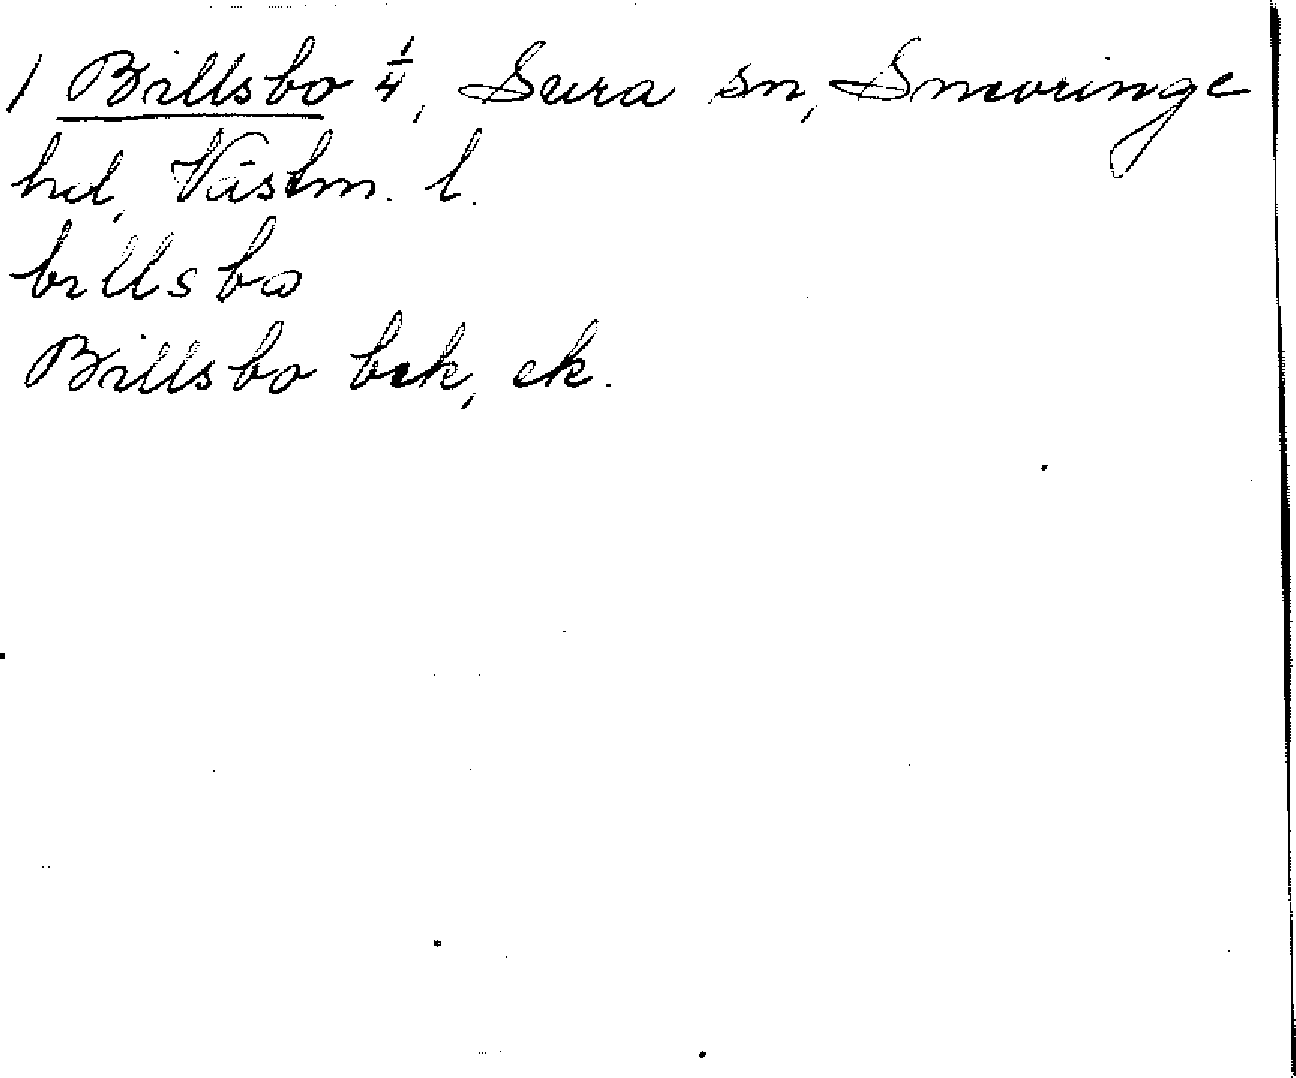 1 Billsbo 1/4, Sura sn, Snevringe
hd, Västm. l.
billsbo
Billsbo bek, ek.